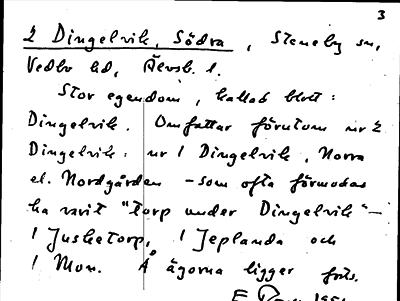 3
2 Dingelvik, Södra, Steneby sn,
Vedbo hd, Älvsb. l.
Stor egendom, kallas blott:
Dingelvik. Omfattar förutom nr 2
Dingelvik: nr 1 Dingelvik, Norra
el. Nordgården – som ofta förmodas
ha varit "torp under Dingelvik" –
1 Jusketorp, 1 Jeplanda och
1 Mon. Å ägorna ligger forts.
E